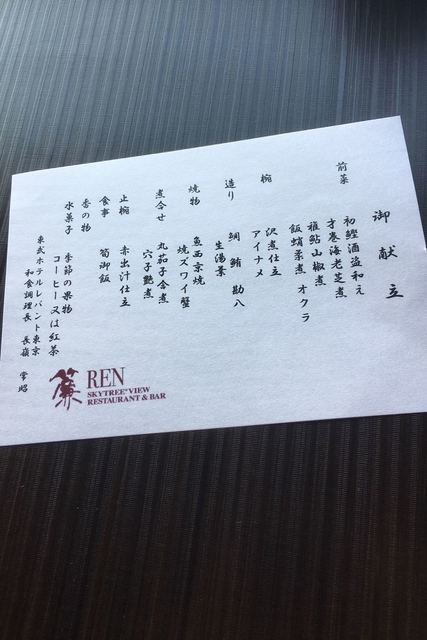 御献立
前菜
初鰹酒盗和え
才巻海老芝煮
稚鮎山椒煮
飯蛸柔煮 オクラ
椀
沢煮仕立
アイナメ
造り
鯛 鮪 勘八
生湯葉
焼物
魚西京焼
焼ズワイ蟹
煮合せ
丸茄子含煮
穴子艶煮
止椀 赤出汁仕立
食事 筍御飯
香の物
水菓子 季節の果物
コーヒー又は紅茶
東武ホテルレバント東京
和食調理長 長嶺 常昭
簾 REN
SKYTREE® VIEW
RESTAURANT & BAR